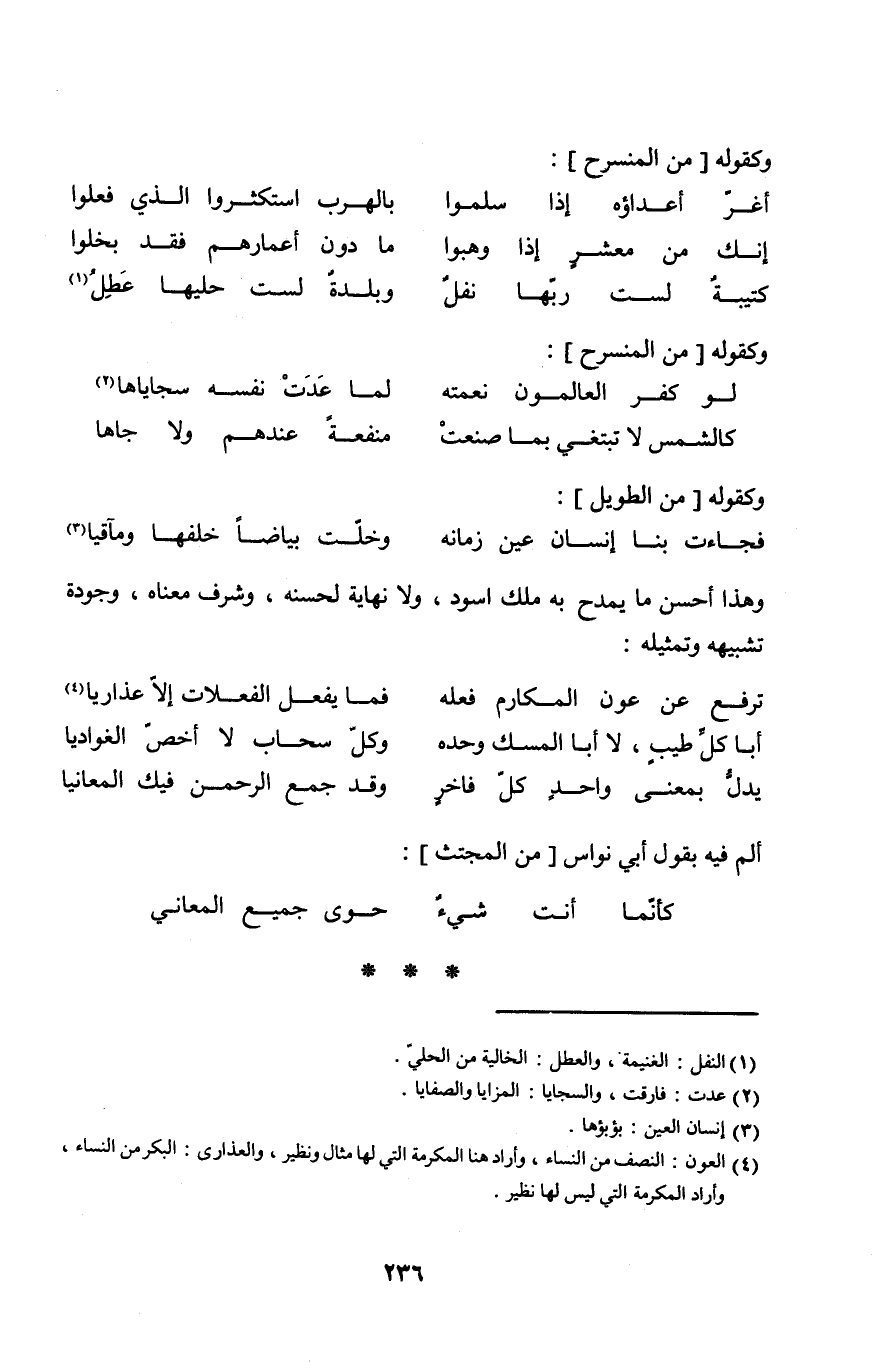 وكقوله [ من المنسرح ] :
أغـرّ أعـداؤه إذا سلمـوا بالهـرب استكثـروا الـذي فعلوا
إنـك من معشـرٍ إذا وهبوا ما دون أعمارهـم فقـد بخلوا
كتيبـةٌ لسـت ربّهـا نفلٌ وبلـدةٌ لسـت حليهـا عَطِلُ (١)
وكقوله [ من المنسرح ] :
لـو كفـر العالمـون نعمته لمـا عَدَتْ نفسـه سجاياها (٢)
كالشمـس لا تبتغـي بمـا صنعتْ منفعـةً عندهـم ولا جاها
وكقوله [ من الطويل ] :
فجـاءت بنـا إنسـان عين زمانه وخلّـت بياضـاً خلفهـا ومآقيا (٣)
وهذا أحسن ما يمدح به ملك اسود ، ولا نهاية لحسنه ، وشرف معناه ، وجودة
تشبيهه وتمثيله :
ترفـع عن عون المـكارم فعله فمـا يفعـل الفعـلات إلاّ عذاريا (٤)
أبـا كلِّ طيبٍ ، لا أبـا المسـك وحده وكلّ سحـاب لا أخصّ الغواديا
يدلُّ بمعنـى واحـدٍ كلّ فاخرٍ وقـد جمـع الرحمـن فيك المعانيا
ألم فيه بقول أبي نواس [ من المجتث ] :
كأنّمـا أنـت شـيءٌ حـوى جميـع المعانـي
* * *
(١) النفل : الغنيمة ، والعطل : الخالية من الحليّ .
(٢) عدت : فارقت ، والسجايا : المزايا والصفايا .
(٣) إنسان العين : بؤبؤها .
(٤) العون : النصف من النساء ، وأراد هنا المكرمة التي لها مثال ونظير ، والعذارى : البكر من النساء ،
وأراد المكرمة التي ليس لها نظير .
٢٣٦